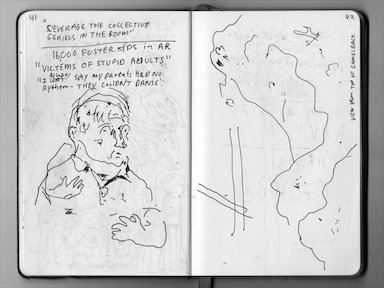 41
"LEVERAGE THE COLLECTIVE
GENIOUS IN THE ROOM"
16000 FOSTER KIDS in AR
"VICTEMS OF STUPID ADULTS."
"I SAY MY PARENTS HAD NO
RYTHEM - THEY COULDN'T DANSE".
42
VIEW FROM TOP OF CAMELBACK